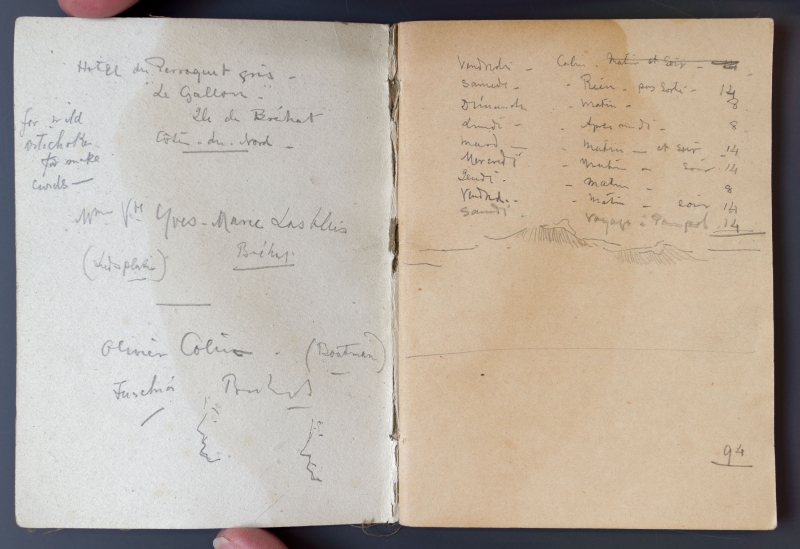 Hotel du Perroquet gris -
"Le Gallon"
Ile du Bréhat
Côtes-du-Nord -
for wild
artichoke
for make
curds -
Mme Vve Yves-Marie
Bréhat.
Olivier Colin - (Boatman)
Bréhat
Vendredi - Colin - Matin et Soir - 14
Samedi - - Rien - pas Sorti - 14
Dimanche - Matin - 8
Lundi - - Apres midi - 8
Mardi - - Matin - et soir - 14
Mercredi - Matin - soir - 14
Jeudi - - Matin - 8
Vendredi - - Matin - soir 14
Samedi - Voyage à Paimpol 14
94